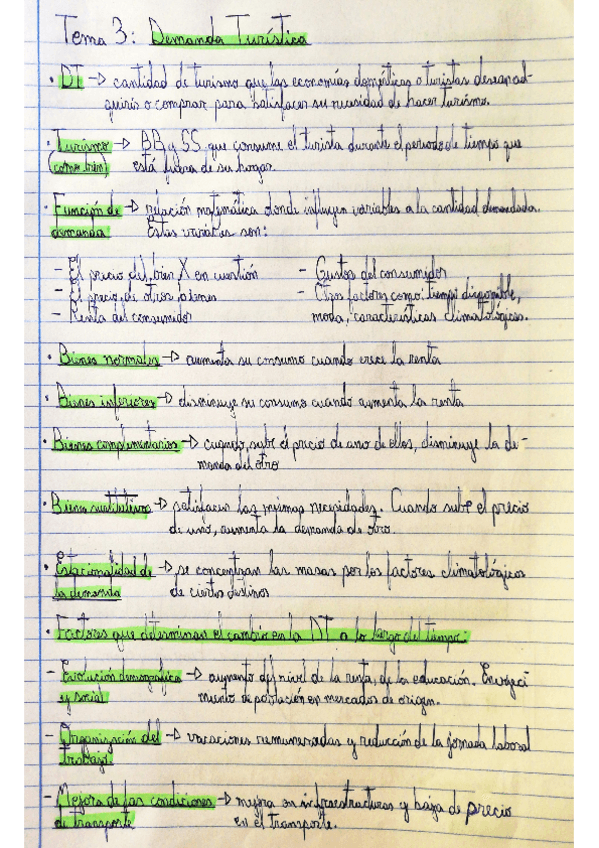 Tema 3: Demanda Turística
· DT → cantidad de turismo que las economías domésticas o turistas desean ad-
quirir o comprar para satisfacer su necesidad de hacer turismo.
· Turismo → BB y SS que consume el turista durante el periodo de tiempo que
(como bien) está fuera de su hogar.
· Función de → relación matemática donde influyen variables a la cantidad demandada.
demanda Estas variables son:
- El precio del bien X en cuestión - Gustos del consumidor
- El precio de otros bienes - Otros factores como: tiempo disponible,
- Renta del consumidor moda, características climatológicas.
· Bienes normales → aumenta su consumo cuando crece la renta
· Bienes inferiores → disminuye su consumo cuando aumenta la renta
· Bienes complementarios → cuando sube el precio de uno de ellos, disminuye la de-
manda del otro
· Bienes sustitutivos → satisfacen las mismas necesidades. Cuando sube el precio
de uno, aumenta la demanda de otro.
· Estacionalidad de → se concentran las masas por los factores climatológicos
la demanda de ciertos destinos
· Factores que determinan el cambio en la DT a lo largo del tiempo:
- Evolución demográfica → aumento del nivel de la renta, de la educación. Envejeci
y social miento de población en mercados de origen.
- Organización del → vacaciones remuneradas y reducción de la jornada laboral
trabajo
- Mejora de las condiciones → mejora en infraestructuras y baja de precio
de transporte en el transporte.